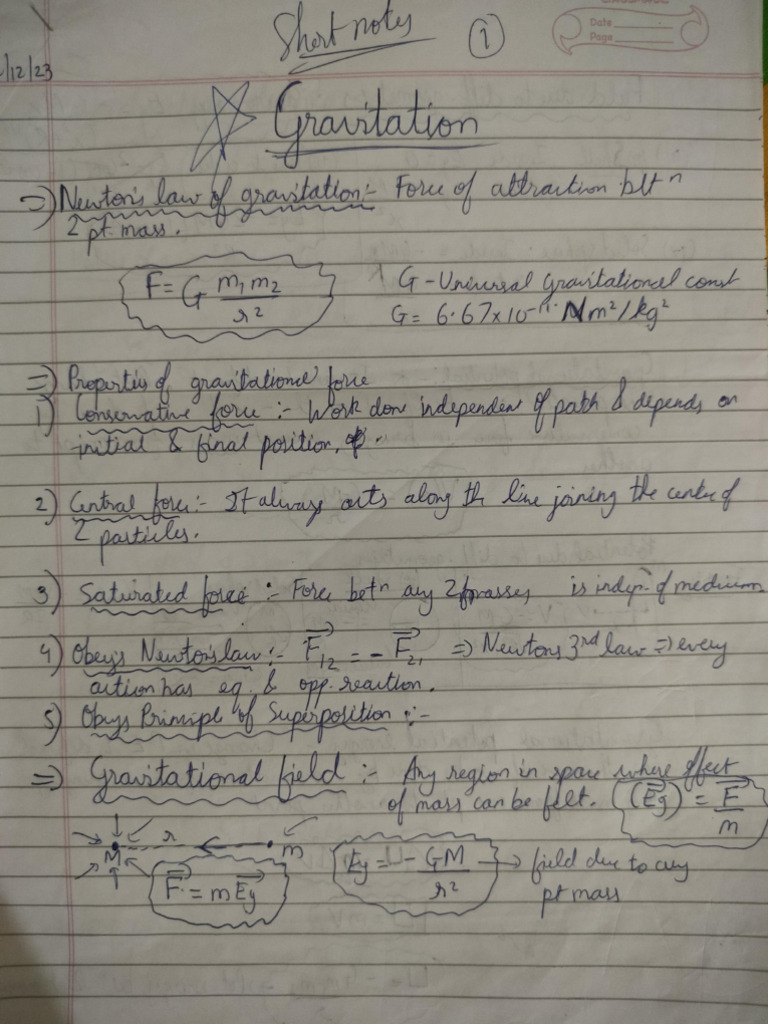 Short notes
1
Date
Page
/12/23
Gravitation
=) Newton's law of gravitation:- Force of attraction bltn
2 pt. mass.
F = G m1 m2 / r²
G - Universal gravitational const
G = 6.67x10⁻¹¹ Nm²/kg²
=) Properties of gravitational force
1) Conservative force :- Work done independen of path & depends on
initial & final position.
2) Central force:- It always acts along the line joining the center of
2 particles.
3) Saturated force :- Force betn any 2 masses is indep. of medium
4) Obey's Newton's law:- F⃗12 = - F⃗21 => Newtons 3rd law => every
action has eq. & opp. reaction.
5) Obeys Principle of Superposition :-
=) Gravitational field :- Any region in space where effect
of mass can be felt. (E⃗g) = F⃗ / m
M r m
F⃗ = mE⃗g
Eg = - GM / r² → field due to any
pt mass